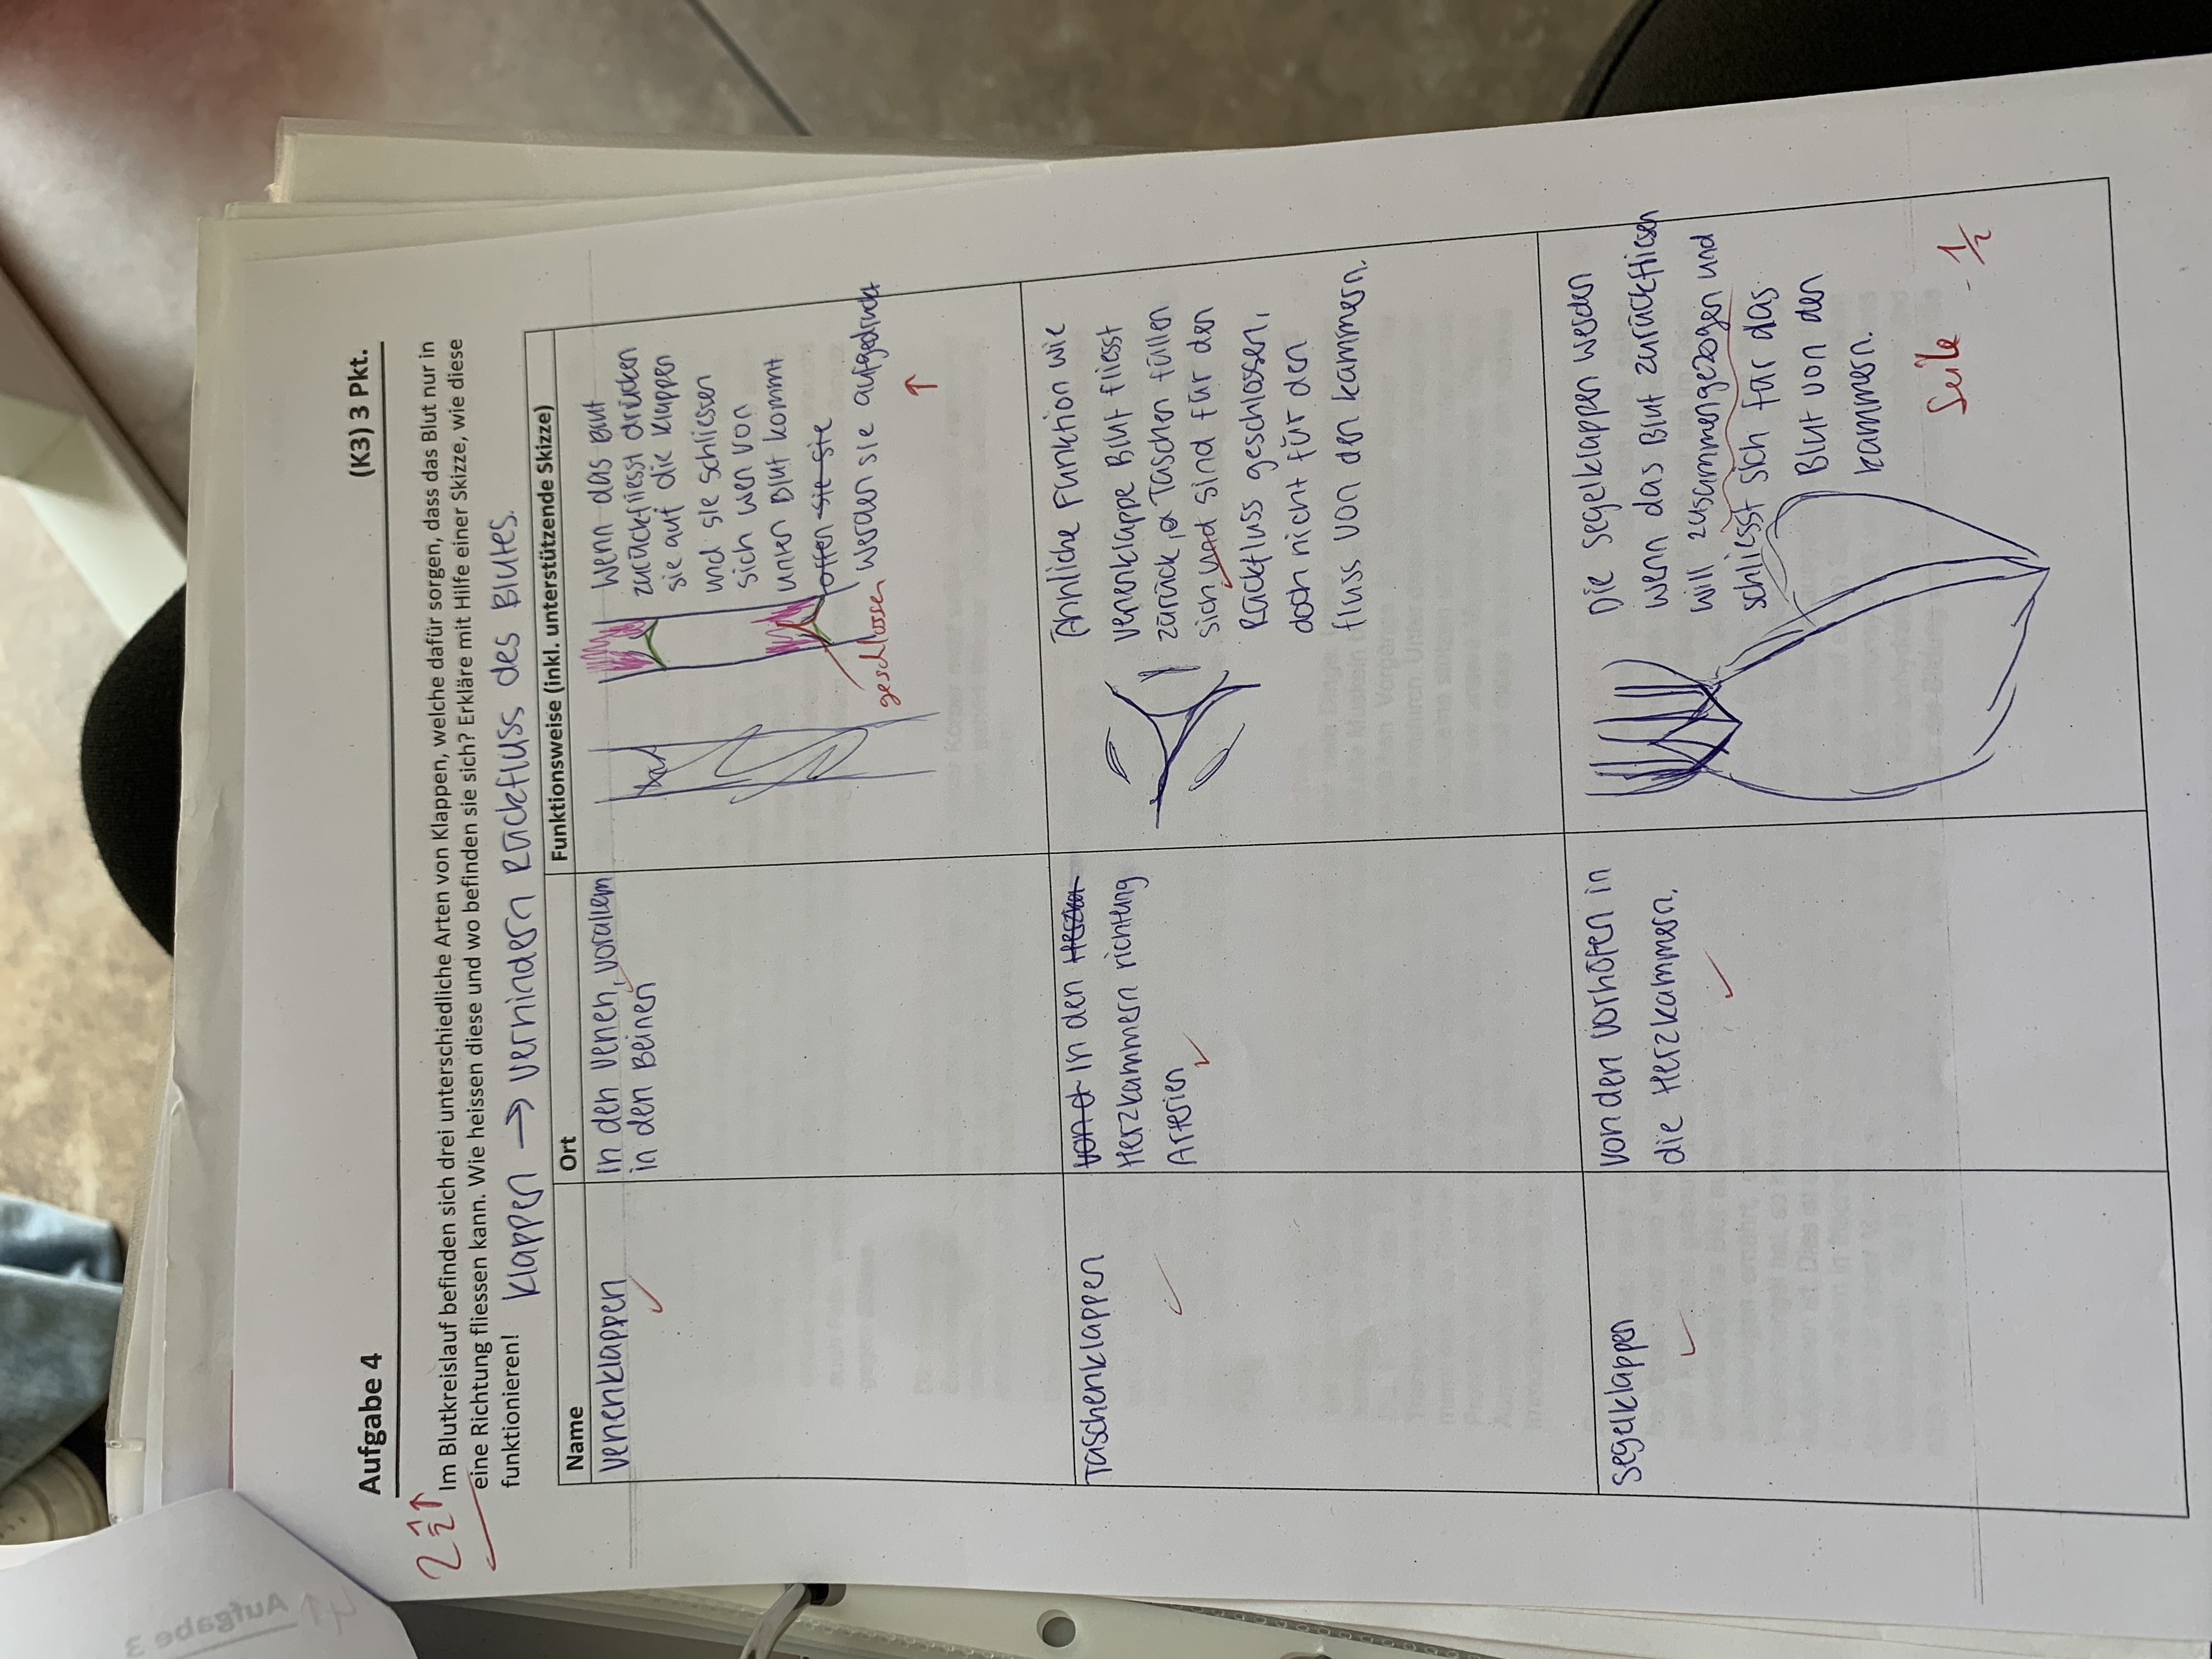 Aufgabe 3
Aufgabe 4
(K3) 3 Pkt.
2 1/2 ↑
Im Blutkreislauf befinden sich drei unterschiedliche Arten von Klappen, welche dafür sorgen, dass das Blut nur in
eine Richtung fliessen kann. Wie heissen diese und wo befinden sie sich? Erkläre mit Hilfe einer Skizze, wie diese
funktionieren!
Klappen → verhindern Rückfluss des Blutes.
Name
Ort
Funktionsweise (inkl. unterstützende Skizze)
Venenklappen
in den Venen, vorallem
in den Beinen
Wenn das Blut
zurückfliesst drücken
sie auf die Klappen
und sie schliessen
sich wen von
unten Blut kommt
offen sie sie
werden sie aufgedruckt
geschlossen
↑
Taschenklappen
von d in den Herzka
Herzkammern richtung
Arterien
Ähnliche Funktion wie
Venenklappe Blut fliesst
zurück, Taschen füllen
sich und sind für den
Rückfluss geschlossen,
doch nicht für den
fluss von den kammern.
Segelklappen
von den Vorhöfen in
die Herzkammern.
Die Segelklappen werden
wenn das Blut zurückfliesen
will zusammengezogen und
schliesst sich für das
Blut von den
kammern.
Seile - 1/2